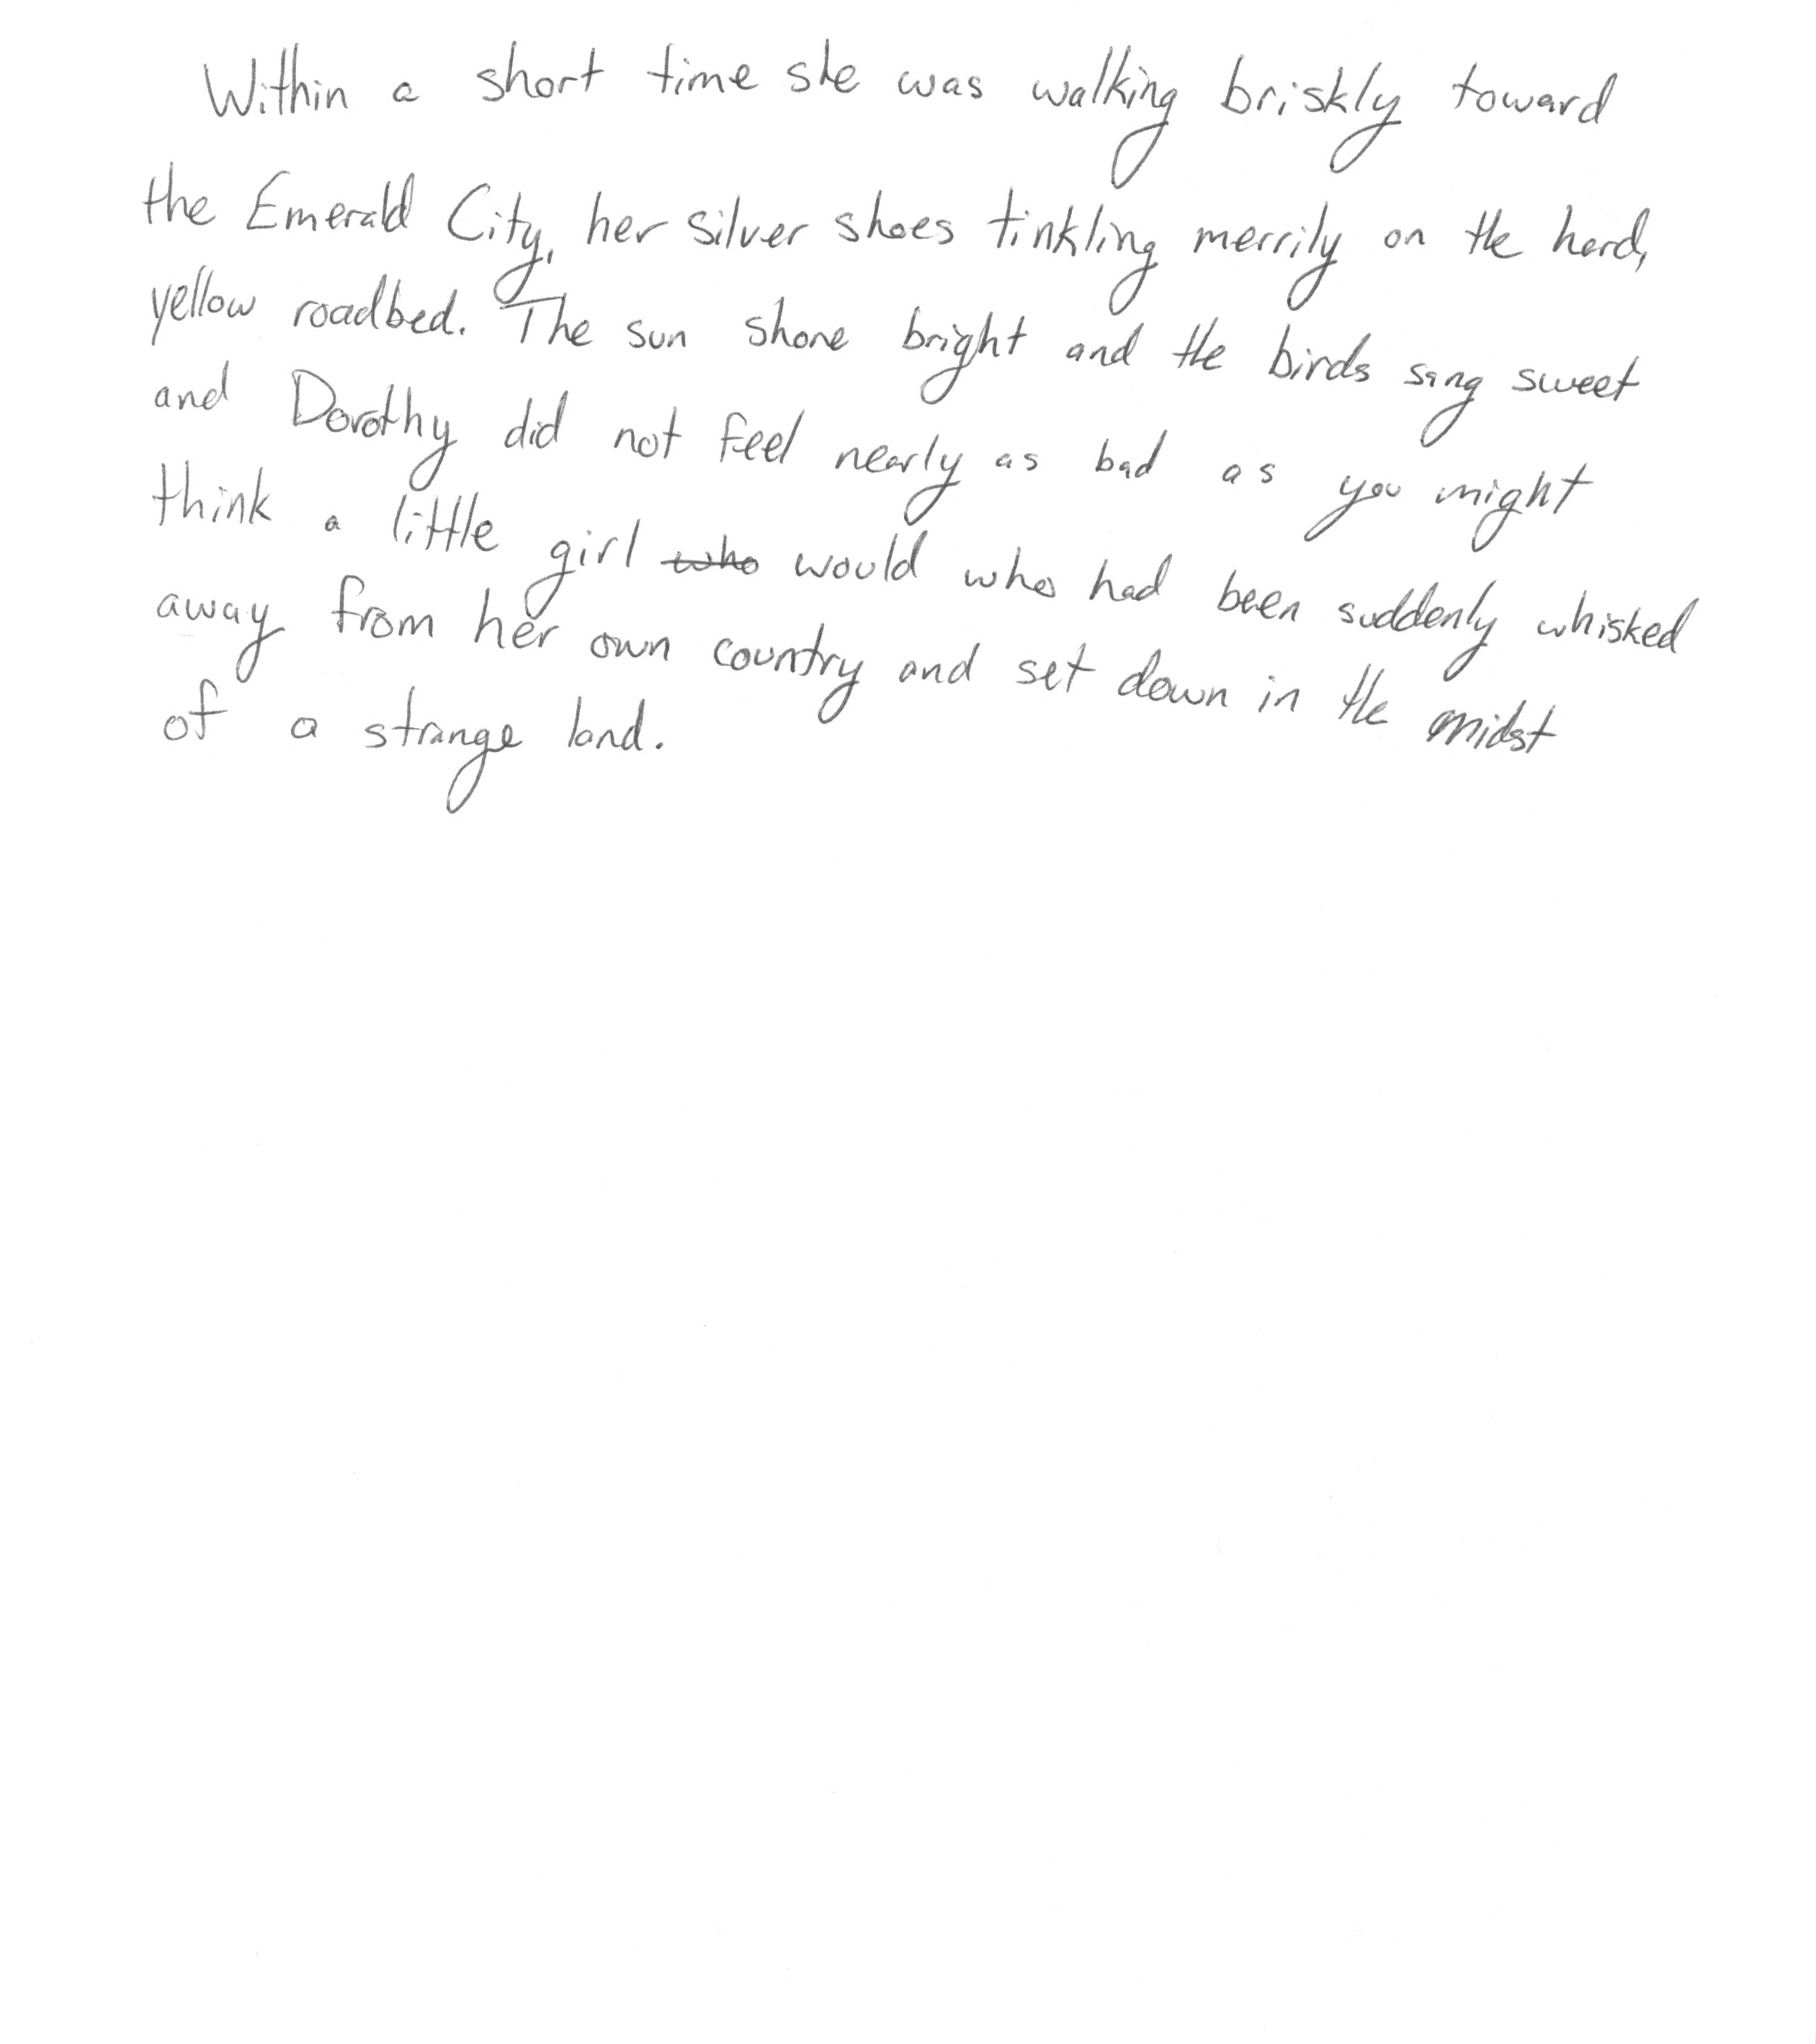 Within a short time she was walking briskly toward
the Emerald City, her silver shoes tinkling merrily on the hard,
yellow roadbed. The sun shone bright and the birds sang sweet
and Dorothy did not feel nearly as bad as you might
think a little girl ~~who~~ would who had been suddenly whisked
away from her own country and set down in the midst
of a strange land.